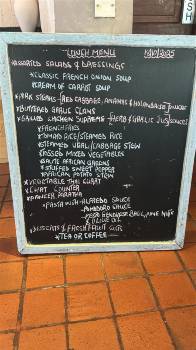 LUNCH MENU
*ASSORTED SALADS & DRESSINGS
*CLASSIC FRENCH ONION SOUP
*CREAM OF CARROT SOUP
*PORK STEAKS - RED CABBAGE, & HOLLANDAISE SAUCES
*BUTTERED GARLIC CLAMS
*GRILLED CHICKEN SUPREME - HERB & GARLIC JUS
*FRENCH FRIES
*TOMATO RICE/STEAMED RICE
*STEAMED UGALI/CABBAGE STEW
*TOSSED MIXED VEGETABLES
AFRICAN GREENS
*STUFFED SWEET PEPPER
*AFRICAN POTATO STEW
*VEGETABLE THAI CURRY
*CHAT COUNTER
PARATHA
*PASTA WITH - ALFREDO SAUCE
POMODORO SAUCE
NUTS
& OLIVE OIL
*BISCUITS & FRESH FRUIT CUTS
*TEA OR COFFEE